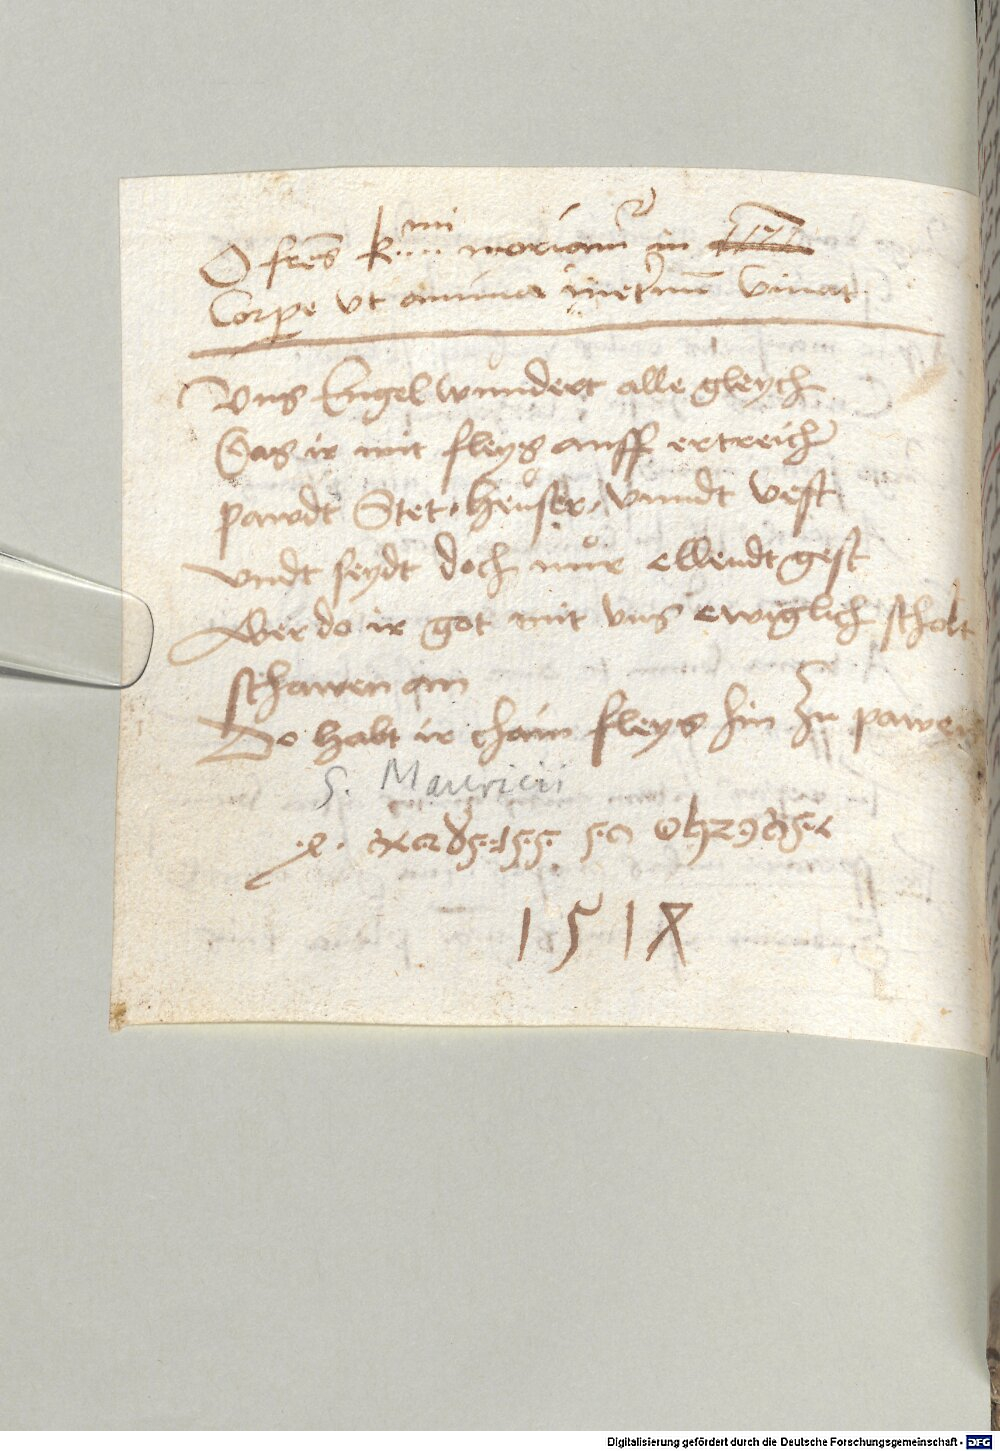 O fr̄es k....mi moriam̄ in
Corpe vt anima inet̄nū viuat
Vns Engel wundert alle gleych
Das ir mit fleys auff ertreich
pawdt Stet, heuser, vnndt vest
vndt seydt doch nuͦr ellendt gest
Aber do ir got mit vns ewiglich scholt
schawen an
Do habt ir chain fleys hin zu pawen
S. Mauricii
1518
Digitalisierung gefördert durch die Deutsche Forschungsgemeinschaft - DFG